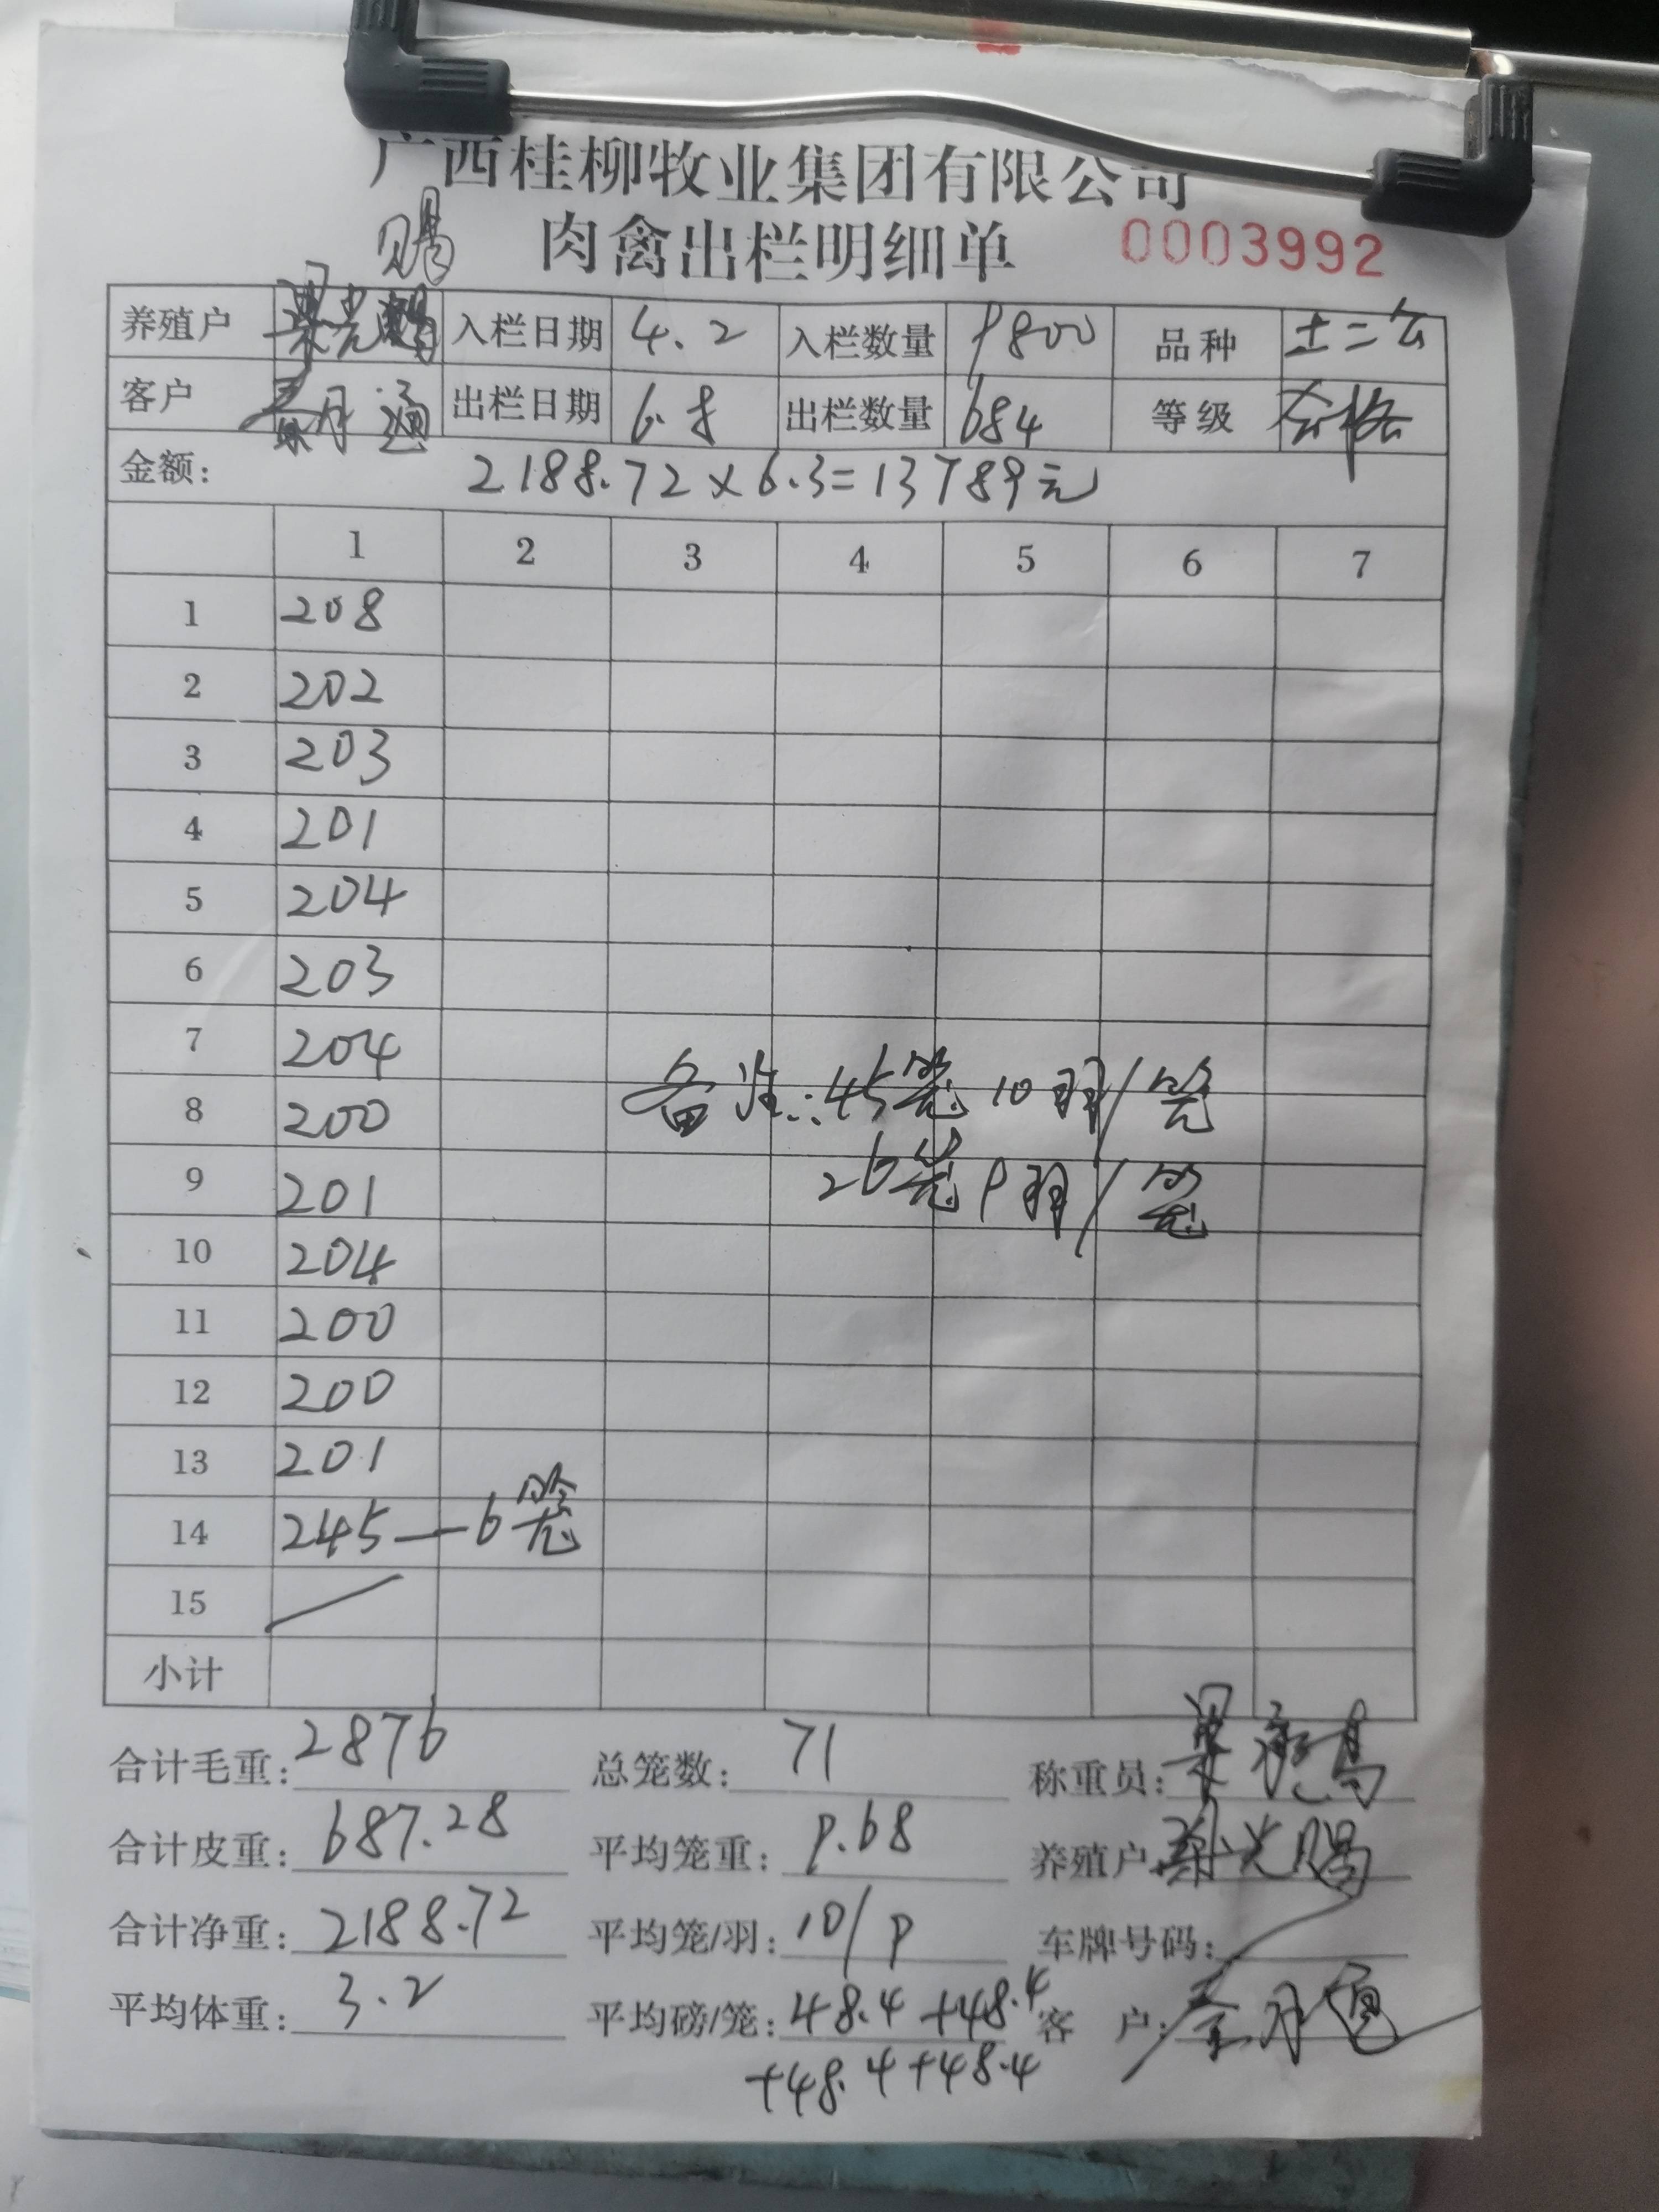 广西桂柳牧业集团有限公司
肉禽出栏明细单 0003992
赐
养殖户 梁光 入栏日期 4.2 入栏数量 9800 品种 土二公
客户 月通 出栏日期 6.8 出栏数量 684 等级 合格
金额: 2188.72×6.3=13789元
1 2 3 4 5 6 7
1 208
2 202
3 203
4 201
5 204
6 203
7 204
8 200
9 201
10 204
11 200
12 200
13 201
14 245—6笼
15 /
小计
备注:45笼 10羽/笼
26笼 9羽/笼
合计毛重: 2876 总笼数: 71 称重员: 梁
合计皮重: 687.28 平均笼重: 9.68 养殖户 梁光赐
合计净重: 2188.72 平均笼/羽: 10/9 车牌号码:
平均体重: 3.2 平均磅/笼: 48.4+48.4 客户: 月通
+48.4+48.4